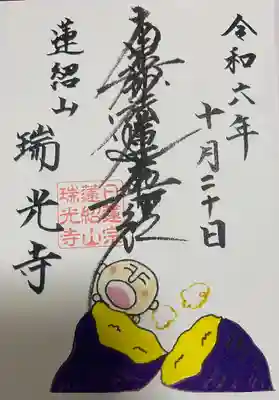 令和六年
十月二十日
南無妙法蓮華経
蓮紹山
瑞光寺
日蓮宗
蓮紹山
瑞光寺